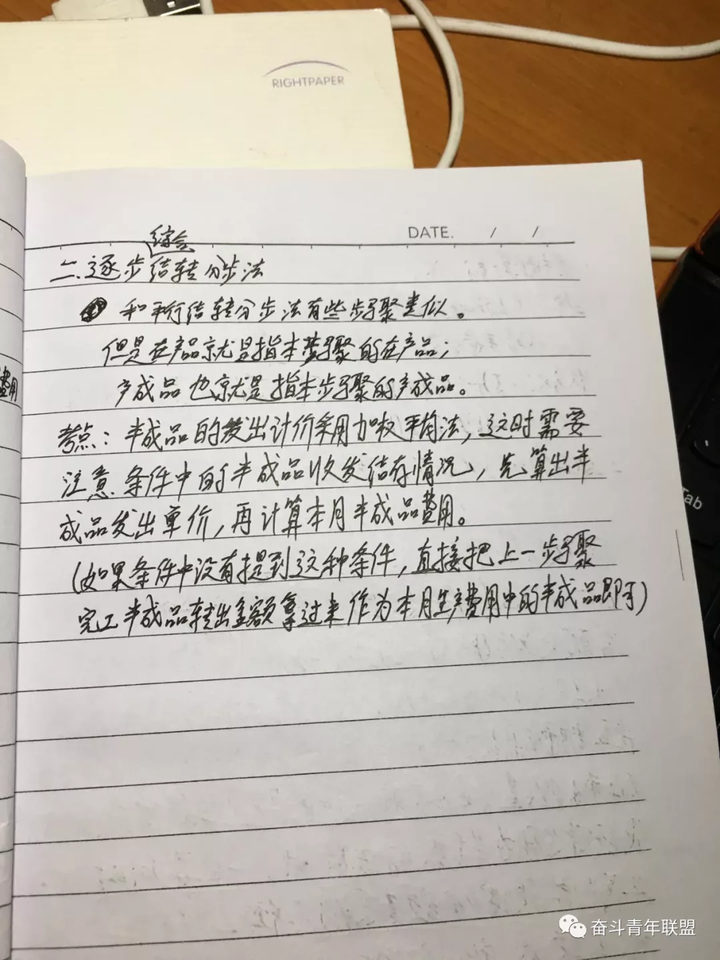 RIGHTPAPER
DATE. / /
综合
二.逐步结转分步法
和平行结转分步法有些步骤类似。
但是在产品就是指本步骤的在产品；
产成品也就是指本步骤的产成品。
费用
考点：半成品的发出计价采用加权平均法，这时需要
注意条件中的半成品收发结存情况，先算出半
成品发出单价，再计算本月半成品费用。
(如果条件中没有提到这种条件，直接把上一步骤
完工半成品转出金额拿过来作为本月生产费用中的半成品即可)
Tab
奋斗青年联盟